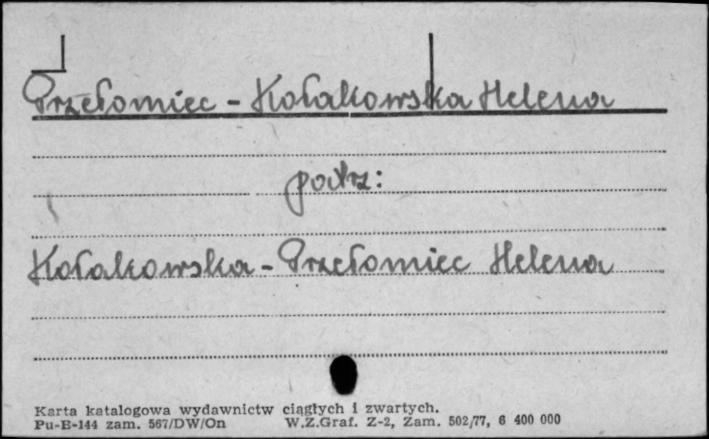 Przełomiec - Kołakowska Helena
patrz:
Kołakowska - Przełomiec Helena
Karta katalogowa wydawnictw ciągłych i zwartych.
Pu-B-144 zam. 567/DW/On W.Z.Graf. Z-2, Zam. 502/77, 6 400 000